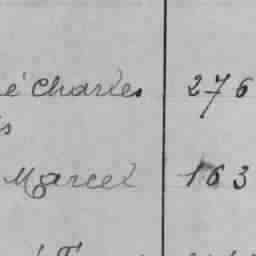 é Charles 276
s
Marcel 163